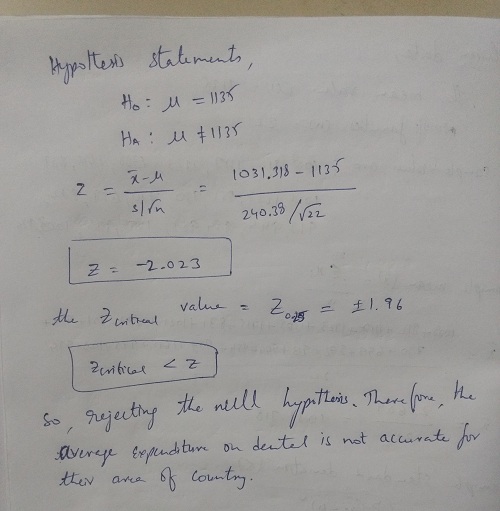 Hypothesis statements,
H₀ : μ = 1135
Hₐ : μ ≠ 1135
Z = (x̄-μ)/(s/√n) = (1031.318 - 1135)/(240.38/√22)
Z = -2.023
the Zcritical value = Z0.025 = ±1.96
Zcritical < Z
So, rejecting the null hypothesis. Therefore, the
average expenditure on dental is not accurate for
their area of country.